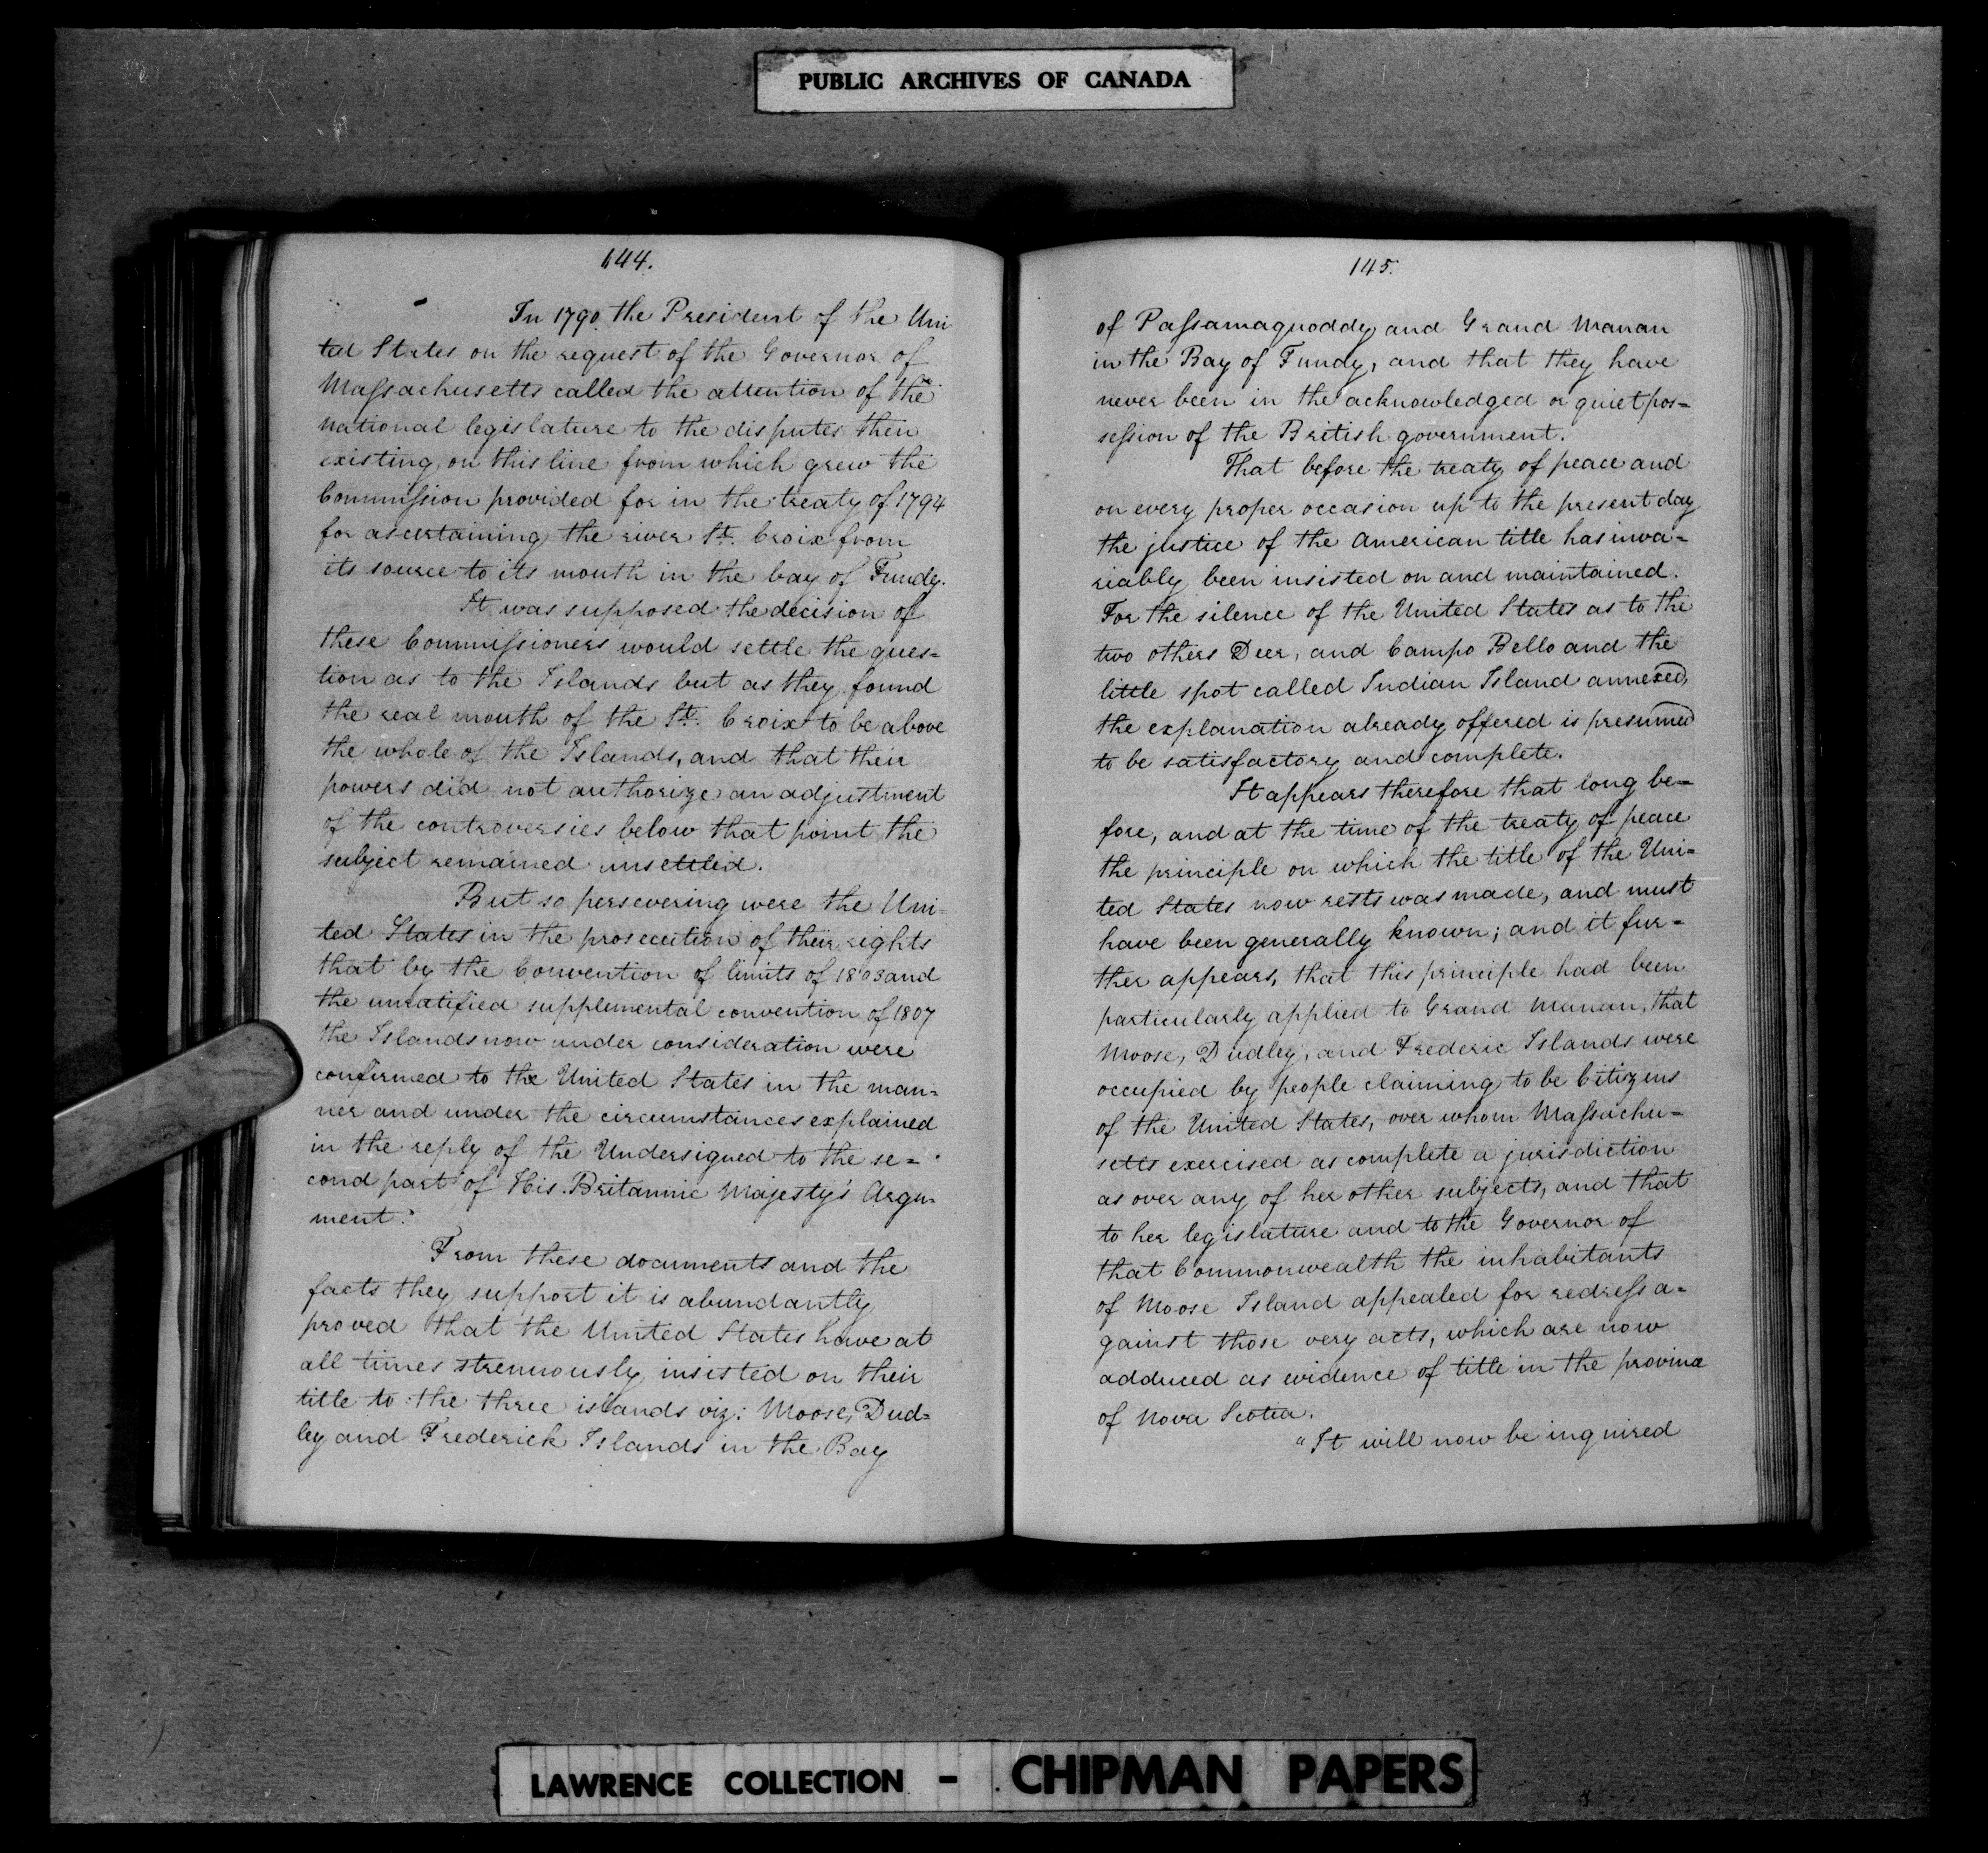 PUBLIC ARCHIVES OF CANADA
144.
In 1790 the President of the Uni
ted States on the request of the Governor of
Maſsachusetts called the attention of the
national legislature to the disputes then
existing on this line from which grew the
Commiſsion provided for in the treaty of 1794
for ascertaining the river St. Croix from
its source to its mouth in the bay of Fundy.
It was supposed the decision of
these Commiſsioners would settle the ques=
tion as to the Islands but as they found
the real mouth of the St. Croix to be above
the whole of the Islands, and that their
powers did not authorize an adjustment
of the controversies below that point the
subject remained unsettled.
But so persevering were the Uni=
ted States in the prosecution of their rights
that by the Convention of limits of 1803 and
the unratified supplemental convention of 1807
the Islands now under consideration were
confirmed to the United States in the man=
ner and under the circumstances explained
in the reply of the Undersigned to the se=
cond part of His Britannic Majesty's Argu=
ment.
From these documents and the
facts they support it is abundantly
proved that the United States have at
all times strenuously insisted on their
title to the three islands viz: Moose, Dud=
ley and Frederick Islands in the Bay
145.
of Paſsamaquoddy and Grand Manan
in the Bay of Fundy, and that they have
never been in the acknowledged or quiet pos=
seſsion of the British government.
That before the treaty of peace and
on every proper occasion up to the present day
the justice of the American title has inva=
riably been insisted on and maintained.
For the silence of the United States as to the
two others Deer, and Campo Bello and the
little spot called Indian Island annexed,
the explanation already offered is presumed
to be satisfactory and complete.
It appears therefore that long be=
fore, and at the time of the treaty of peace
the principle on which the title of the Uni=
ted States now rests was made, and must
have been generally known; and it fur=
ther appears, that this principle had been
particularly applied to Grand Manan, that
Moose, Dudley, and Frederic Islands were
occupied by people claiming to be Citizens
of the United States, over whom Maſsachu=
setts exercised as complete a jurisdiction
as over any of her other subjects, and that
to her legislature and to the Governor of
that Commonwealth the inhabitants
of Moose Island appealed for redreſs a=
gainst those very acts, which are now
adduced as evidence of title in the province
of Nova Scotia.
"It will now be inquired
LAWRENCE COLLECTION - CHIPMAN PAPERS